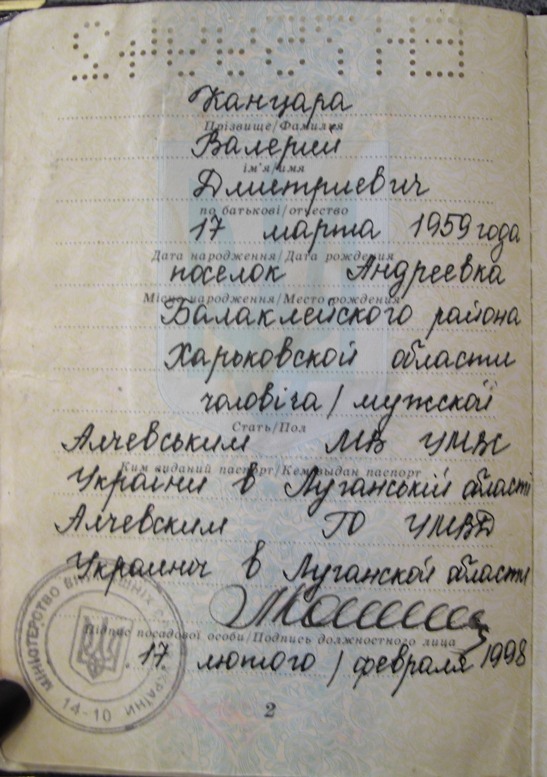 Канцара
Прізвище/Фамилия
Валерий
ім'я/имя
Дмитриевич
по батькові/отчество
17 марта 1959 года
Дата народження/Дата рождения
поселок Андреевка
Місце народження/Место рождения
Балаклейского района
Харьковской области
чоловіча / мужской
Стать/Пол
Алчевським МВ УМВС
Ким виданий паспорт/Кем выдан паспорт
України в Луганській області
Алчевским ГО УМВД
Украины в Луганской области
Підпис посадової особи/Подпись должностного лица
17 лютого / февраля 1998
МІНІСТЕРСТВО ВНУТРІШНІХ СПРАВ УКРАЇНИ
14-10
2